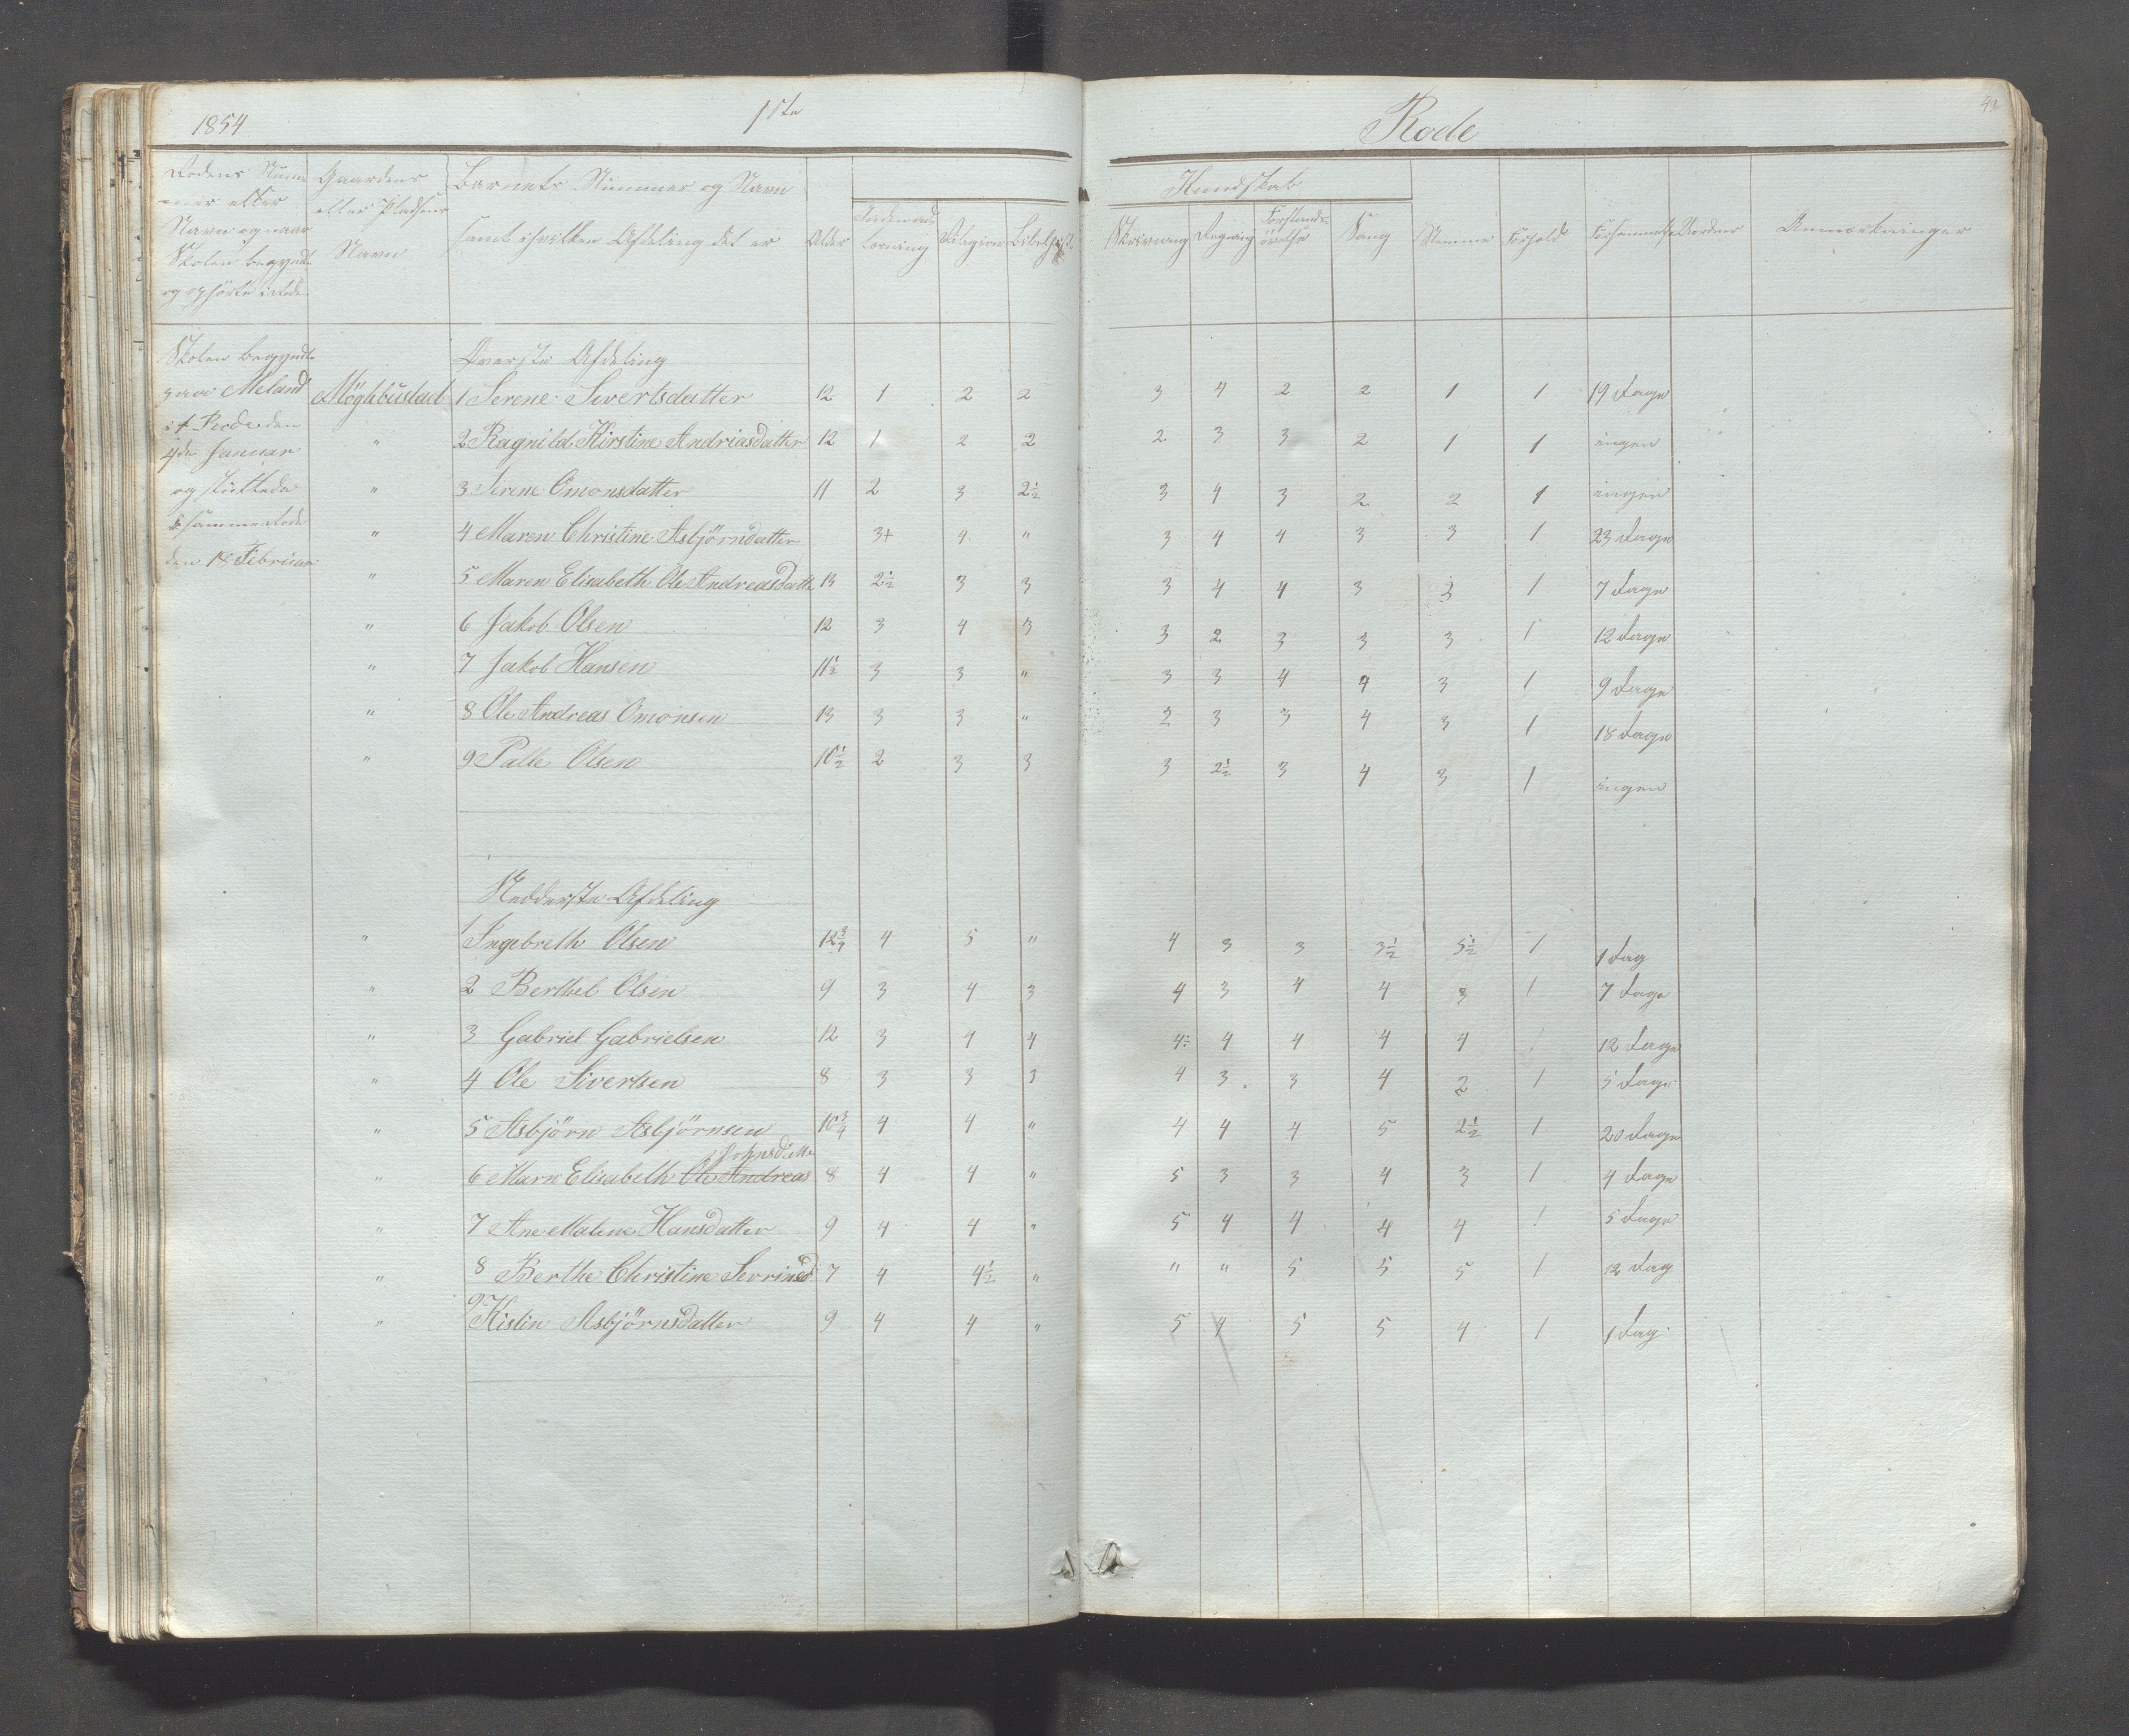 1854 1ste Rode 42
Rodens Num- Gaardens Barnets Nummer og Navn Kundskab
mer eller eller Pladsens
Navn og naar Navn samt ihvilken Afdeling det er Alder Indenad- læsning Religion Bibelhist. Skrivning Regning Forstands- övelse Sang Stemme Forhold Forsömmelse Anmærkninger
Skolen begyndte
og ophörte i Rode
Skolen begyndte Överste Afdeling
paa Meland Möglebustad 1 Serene Sivertsdatter 12 1 2 2 3 4 2 2 1 1 19 Dage
i 1 Rode den " 2 Ragnild Kirstine Andriasdatter 12 1 2 2 2 3 3 2 1 1 ingen
4de Januar
og sluttede " 3 Serene Omonsdatter 11 2 3 2½ 3 4 3 2 2 1 ingen
samme Rode " 4 Maren Christine Asbjörnsdatter 3+ 4 " 3 4 4 3 3 1 23 Dage
den 18 Februar " 5 Maren Elisabeth Ole Andreasdatte 13 2½ 3 3 3 4 4 3 3 1 7 Dage
" 6 Jakob Olsen 12 3 4 3 3 2 3 3 3 1 12 Dage
" 7 Jakob Hansen 11½ 3 3 " 3 3 4 4 3 1 9 Dage
" 8 Ole Andreas Omonsen 13 3 3 " 2 3 3 4 3 1 18 Dage
" 9 Palle Olsen 10½ 2 3 3 3 2½ 3 4 3 1 ingen
Nedderste Afdeling
" 1 Ingebreth Olsen 12¾ 4 5 " 4 3 3 3½ 3½ 1 1 Dag
" 2 Berthel Olsen 9 3 4 3 4 3 4 4 3 1 7 Dage
" 3 Gabriel Gabrielsen 12 3 4 4 4÷ 4 4 4 4 1 12 Dage
" 4 Ole Sivertsen 8 3 3 3 4 3 3 4 2 1 5 Dage
" 5 Asbjörn Asbjörnsen 10¾ 4 4 " 4 4 4 5 2½ 1 20 Dage
Johnsdatte
" 6 Marn Elisabeth Ole Andreas 8 4 4 " 5 3 3 4 3 1 4 Dage
" 7 Ane Malene Hansdatter 9 4 4 " 5 4 4 4 4 1 5 Dage
" 8 Berthe Christine Sevrinsd 7 4 4½ " " " 5 5 5 1 12 Dag
" 9 Kistin Asbjörnsdatter 9 4 4 " 5 4 5 5 4 1 1 Dag